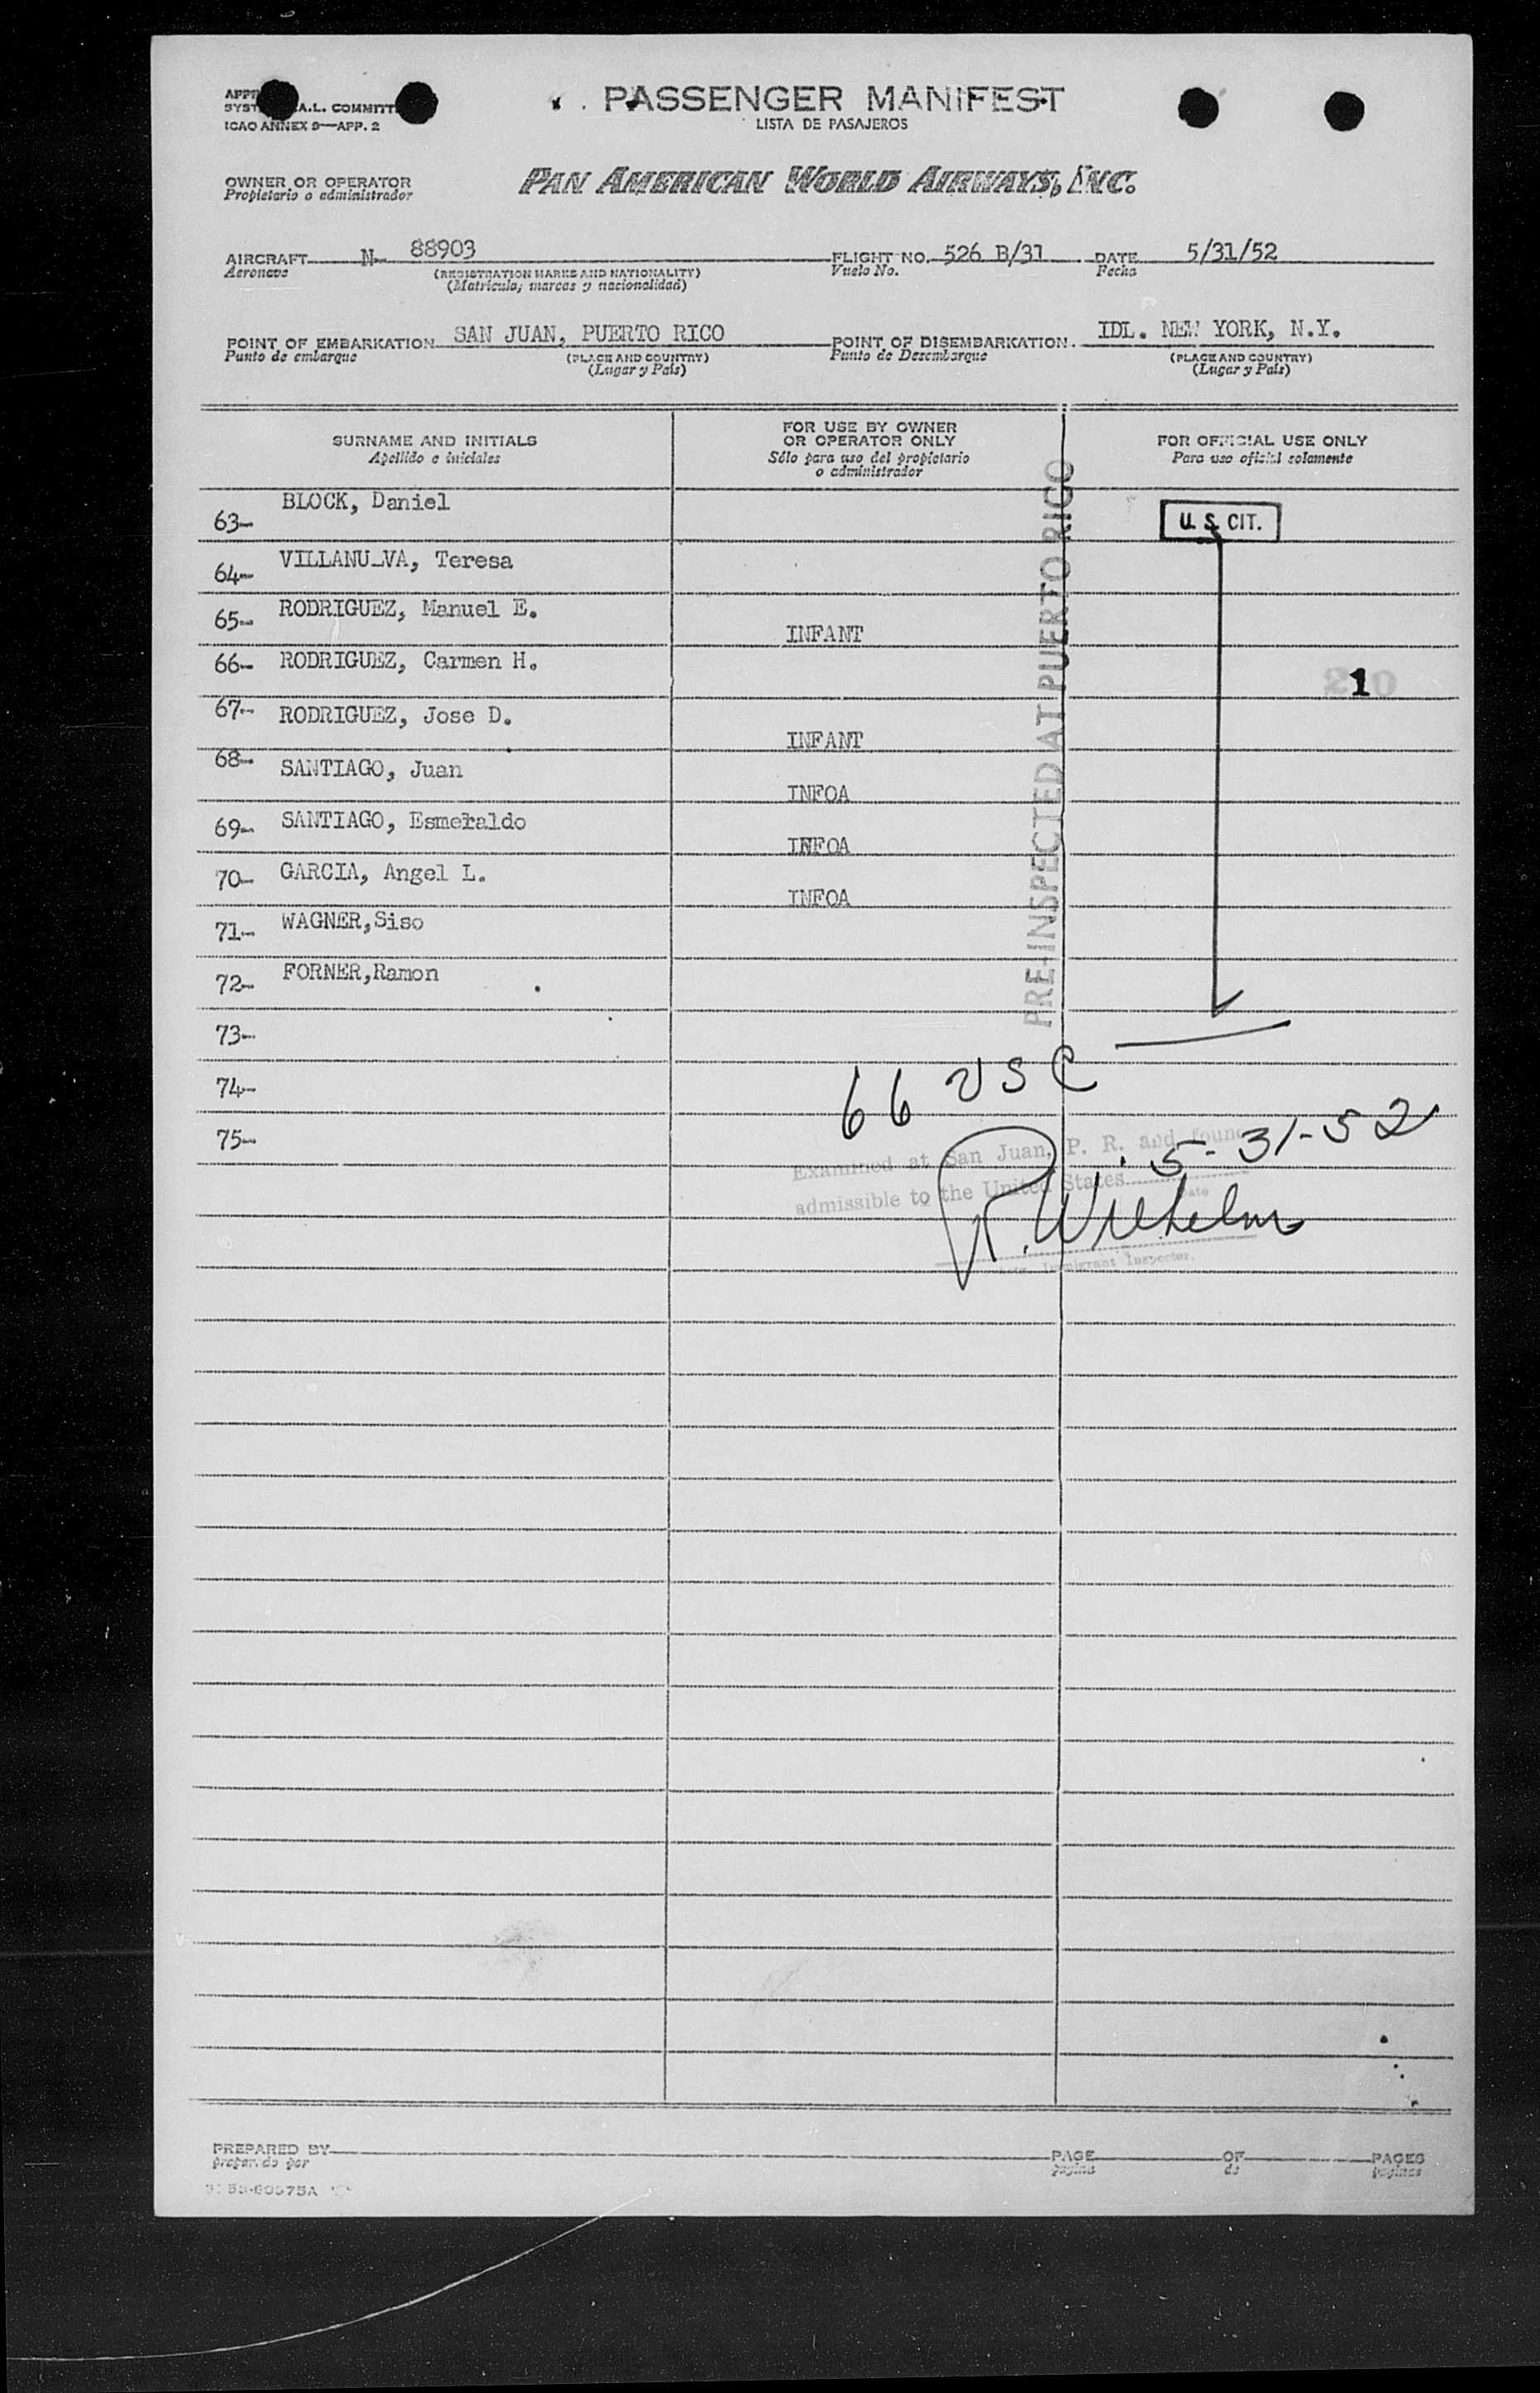 PASSENGER MANIFEST
LISTA DE PASAJEROS
A.L.
ICAO ANNEX 9—APP. 2
OWNER OR OPERATOR PAN AMERICAN WORLD AIRWAYS, INC.
Propietario o administrador
AIRCRAFT N- 88903 FLIGHT NO. 526 B/31 DATE 5/31/52
Aeronave (REGISTRATION MARKS AND NATIONALITY) Vuelo No. Fecha
(Matricula, marcas y nacionalidad)
POINT OF EMBARKATION SAN JUAN, PUERTO RICO POINT OF DISEMBARKATION IDL. NEW YORK, N.Y.
Punto de embarque (PLACE AND COUNTRY) Punto de Desembarque (PLACE AND COUNTRY)
(Lugar y País) (Lugar y País)
SURNAME AND INITIALS
Apellido e iniciales
FOR USE BY OWNER
OR OPERATOR ONLY
Sólo para uso del propietario
o administrador
FOR OFFICIAL USE ONLY
Para uso oficial solamente
63- BLOCK, Daniel U. S. CIT.
64- VILLANU_VA, Teresa
65- RODRIGUEZ, Manuel E. INFANT
66- RODRIGUEZ, Carmen H. 1
67- RODRIGUEZ, Jose D. INFANT
68- SANTIAGO, Juan INFOA
69- SANTIAGO, Esmeraldo INFOA
70- GARCIA, Angel L. INFOA
71- WAGNER,Siso
72- FORNER,Ramon
73-
74-
75-
PRE-INSPECTED AT PUERTO RICO
66 USC
5-31-52
Examined at San Juan, P. R. and found
admissible to the United States
Date
R. Wilhelm
Immigrant Inspector.
PREPARED BY PAGE OF PAGES
preparado por pagina de paginas